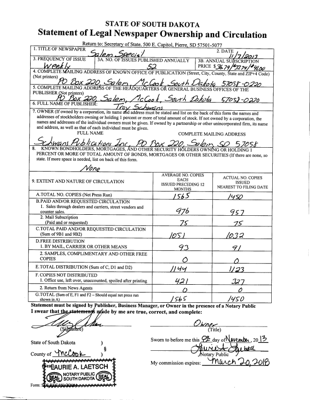 STATE OF SOUTH DAKOTA
Statement of Legal Newspaper Ownership and Circulation
Return to: Secretary of State, 500 E. Capitol, Pierre, SD 57501-5077
1. TITLE OF NEWSPAPER
Salem Special
2. DATE
3. FREQUENCY OF ISSUE
Weekly
3A. NO. OF ISSUES PUBLISHED ANNUALLY
52
3B. ANNUAL SUBSCRIPTION
PRICE
4. COMPLETE MAILING ADDRESS OF KNOWN OFFICE OF PUBLICATION (Street, City, County, State and ZIP+4 Code)
(Not printers)
PO Box 220 Salem, McCook, South Dakota 57058-0220
5. COMPLETE MAILING ADDRESS OF THE HEADQUARTERS OR GENERAL BUSINESS OFFICES OF THE
PUBLISHER (Not printers)
PO Box 220 Salem, McCook, South Dakota 57058-0220
6. FULL NAME OF PUBLISHER
Troy Schwans
7. OWNER (If owned by a corporation, its name and address must be stated and list on the back of this form the names and
addresses of stockholders owning or holding 1 percent or more of total amount of stock. If not owned by a corporation, the
names and addresses of the individual owners must be given. If owned by a partnership or other unincorporated firm, its name
and address, as well as that of each individual must be given.
FULL NAME
COMPLETE MAILING ADDRESS
Schwans Publication Inc, PO Box 220 Salem, SD 57058
8. KNOWN BONDHOLDERS, MORTGAGES, AND OTHER SECURITY HOLDERS OWNING OR HOLDING 1
PERCENT OR MORE OF TOTAL AMOUNT OF BONDS, MORTGAGES OR OTHER SECURITIES (If there are none, so
state. If more space is needed, list on back of this form.
None
9. EXTENT AND NATURE OF CIRCULATION
AVERAGE NO. COPIES
EACH
ISSUED PRECEDING 12
MONTHS
ACTUAL NO. COPIES
ISSUED
NEAREST TO FILING DATE
A. TOTAL NO. COPIES (Net Press Run)
1565
1450
B. PAID AND/OR REQUESTED CIRCULATION
1. Sales through dealers and carriers, street vendors and
counter sales.
976
957
2. Mail Subscription
(Paid and/or requested)
75
75
C. TOTAL PAID AND/OR REQUESTED CIRCULATION
(Sum of 9B1 and 9B2)
1051
1032
D. FREE DISTRIBUTION
1. BY MAIL, CARRIER OR OTHER MEANS
93
91
2. SAMPLES, COMPLIMENTARY AND OTHER FREE
COPIES
0
0
E. TOTAL DISTRIBUTION (Sum of C, D1 and D2)
1144
1123
F. COPIES NOT DISTRIBUTED
1. Office use, left over, unaccounted, spoiled after printing
421
327
2. Return from News Agents
0
0
G. TOTAL (Sum of E, F1 and F2 - Should equal net press run
shown in A)
1565
1450
Statement must be signed by Publisher, Business Manager, or Owner in the presence of a Notary Public
I swear that the statements made by me are true, correct, and complete:
(Signature)
Owner
(Title)
State of South Dakota )
Sworn to before me this day of November, 2013
County of McCook )
Notary Public
LAURIE A. LAETSCH
NOTARY PUBLIC
SOUTH DAKOTA
SEAL
SEAL
My commission expires: March 20, 2018